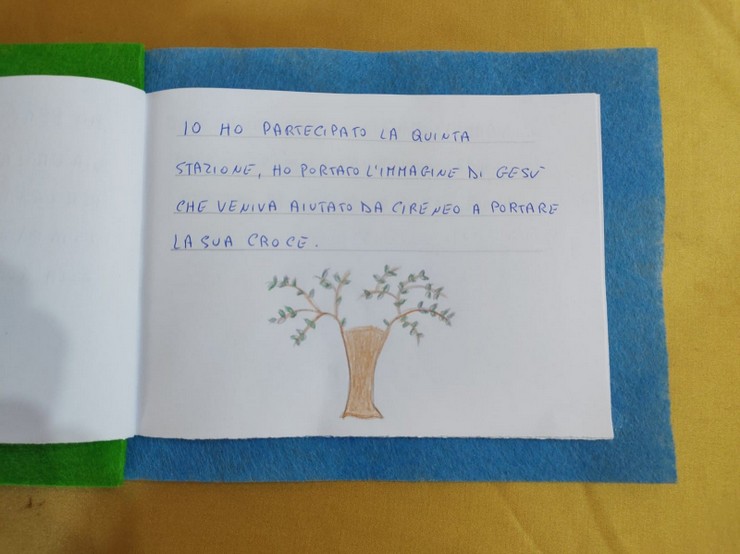 IO HO PARTECIPATO LA QUINTA
STAZIONE, HO PORTATO L'IMMAGINE DI GESÙ
CHE VENIVA AIUTATO DA CIRENEO A PORTARE
LA SUA CROCE.